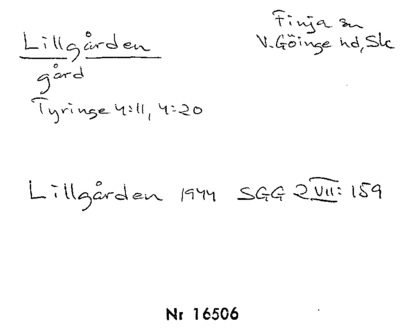 Lillgården
gård
Tyringe 4:11, 4:20
Finja sn
V. Göinge hd, Sk
Lillgården 1944 SGG 2 VII: 159
Nr 16506